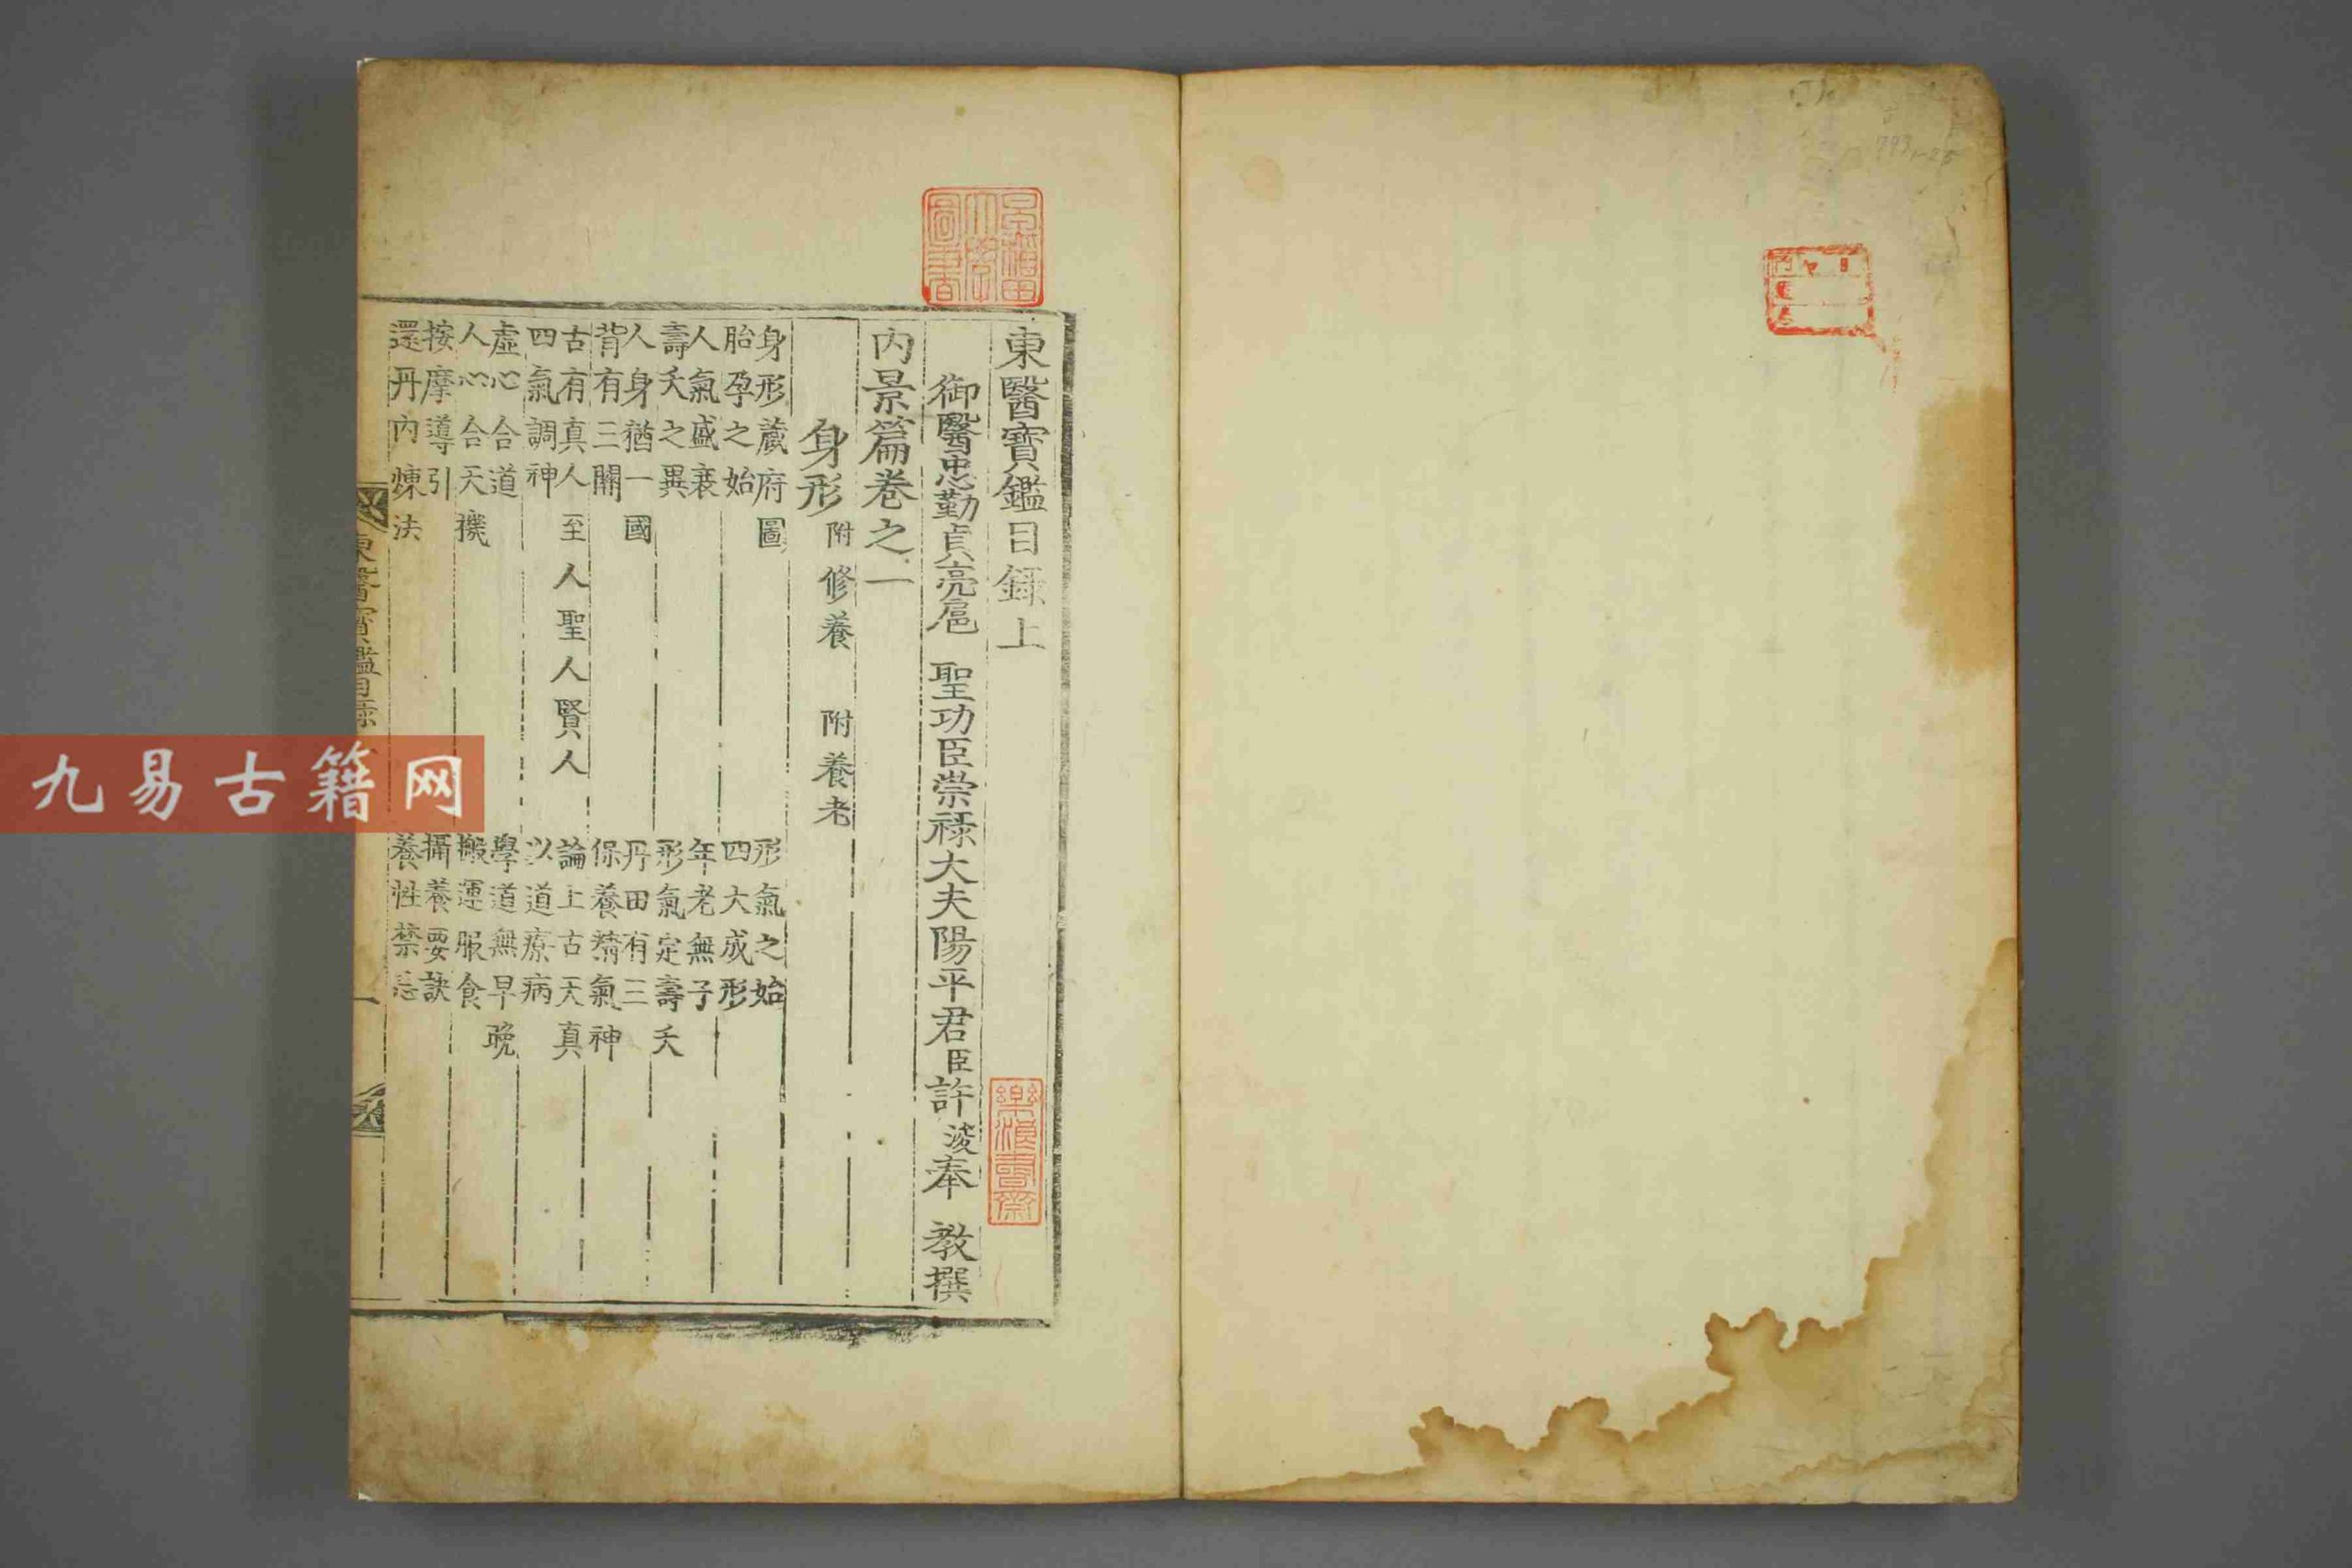 東醫寶鑑目錄上
御醫忠勤貞亮扈 聖功臣崇祿大夫陽平君臣許浚奉 教撰
內景篇卷之一
身形 附修養 附養老
身形藏府圖 形氣之始
胎孕之始 四大成形
人氣盛衰 年老無子
壽夭之異 形氣定壽夭
人身猶一國 丹田有三
背有三關 保養精氣神
古有真人至人聖人賢人 論上古天真
四氣調神 以道療病
虛心合道 學道無早晚
人心合天機 搬運服食
按摩導引 攝養要訣
還丹內煉法 養性禁忌
東醫寶鑑目錄上 一
樂浪書齋
九易古籍网